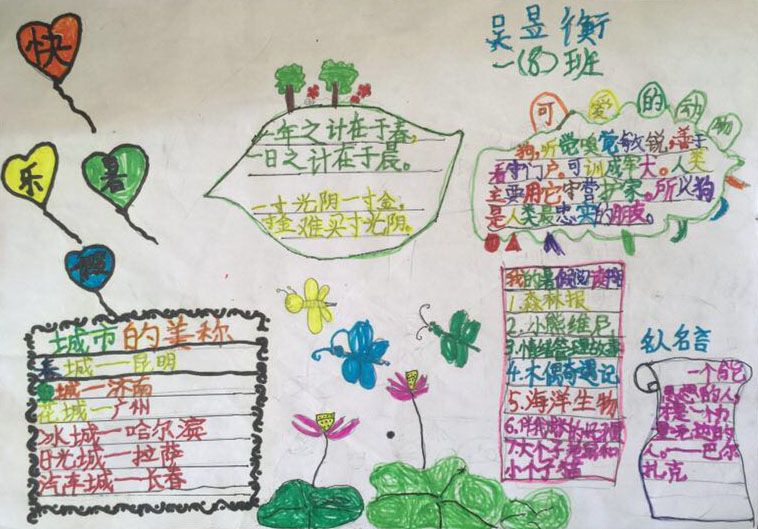 快
乐
暑
假
吴昱衡
一(8)班
一年之计在于春,
一日之计在于晨。
一寸光阴一寸金,
寸金难买寸光阴。
可爱的动物
狗,听觉嗅觉敏锐,善于
看守门户。可训成军犬。人类
主要用它守营护家。所以狗
是人类最忠实的朋友。
城市的美称
春城一昆明
泉城一济南
花城一广州
冰城一哈尔滨
日光城一拉萨
汽车城一长春
我的暑假阅读
1.森林报
2.小熊维尼
3.情绪管理故事
4.木偶奇遇记
5.海洋生物
6.伴我成长的好习惯
7.大个子老鼠和
小个子猫
名人名言
一个能
思想的人,
才是一个力
量无边的
人。——巴尔
扎克